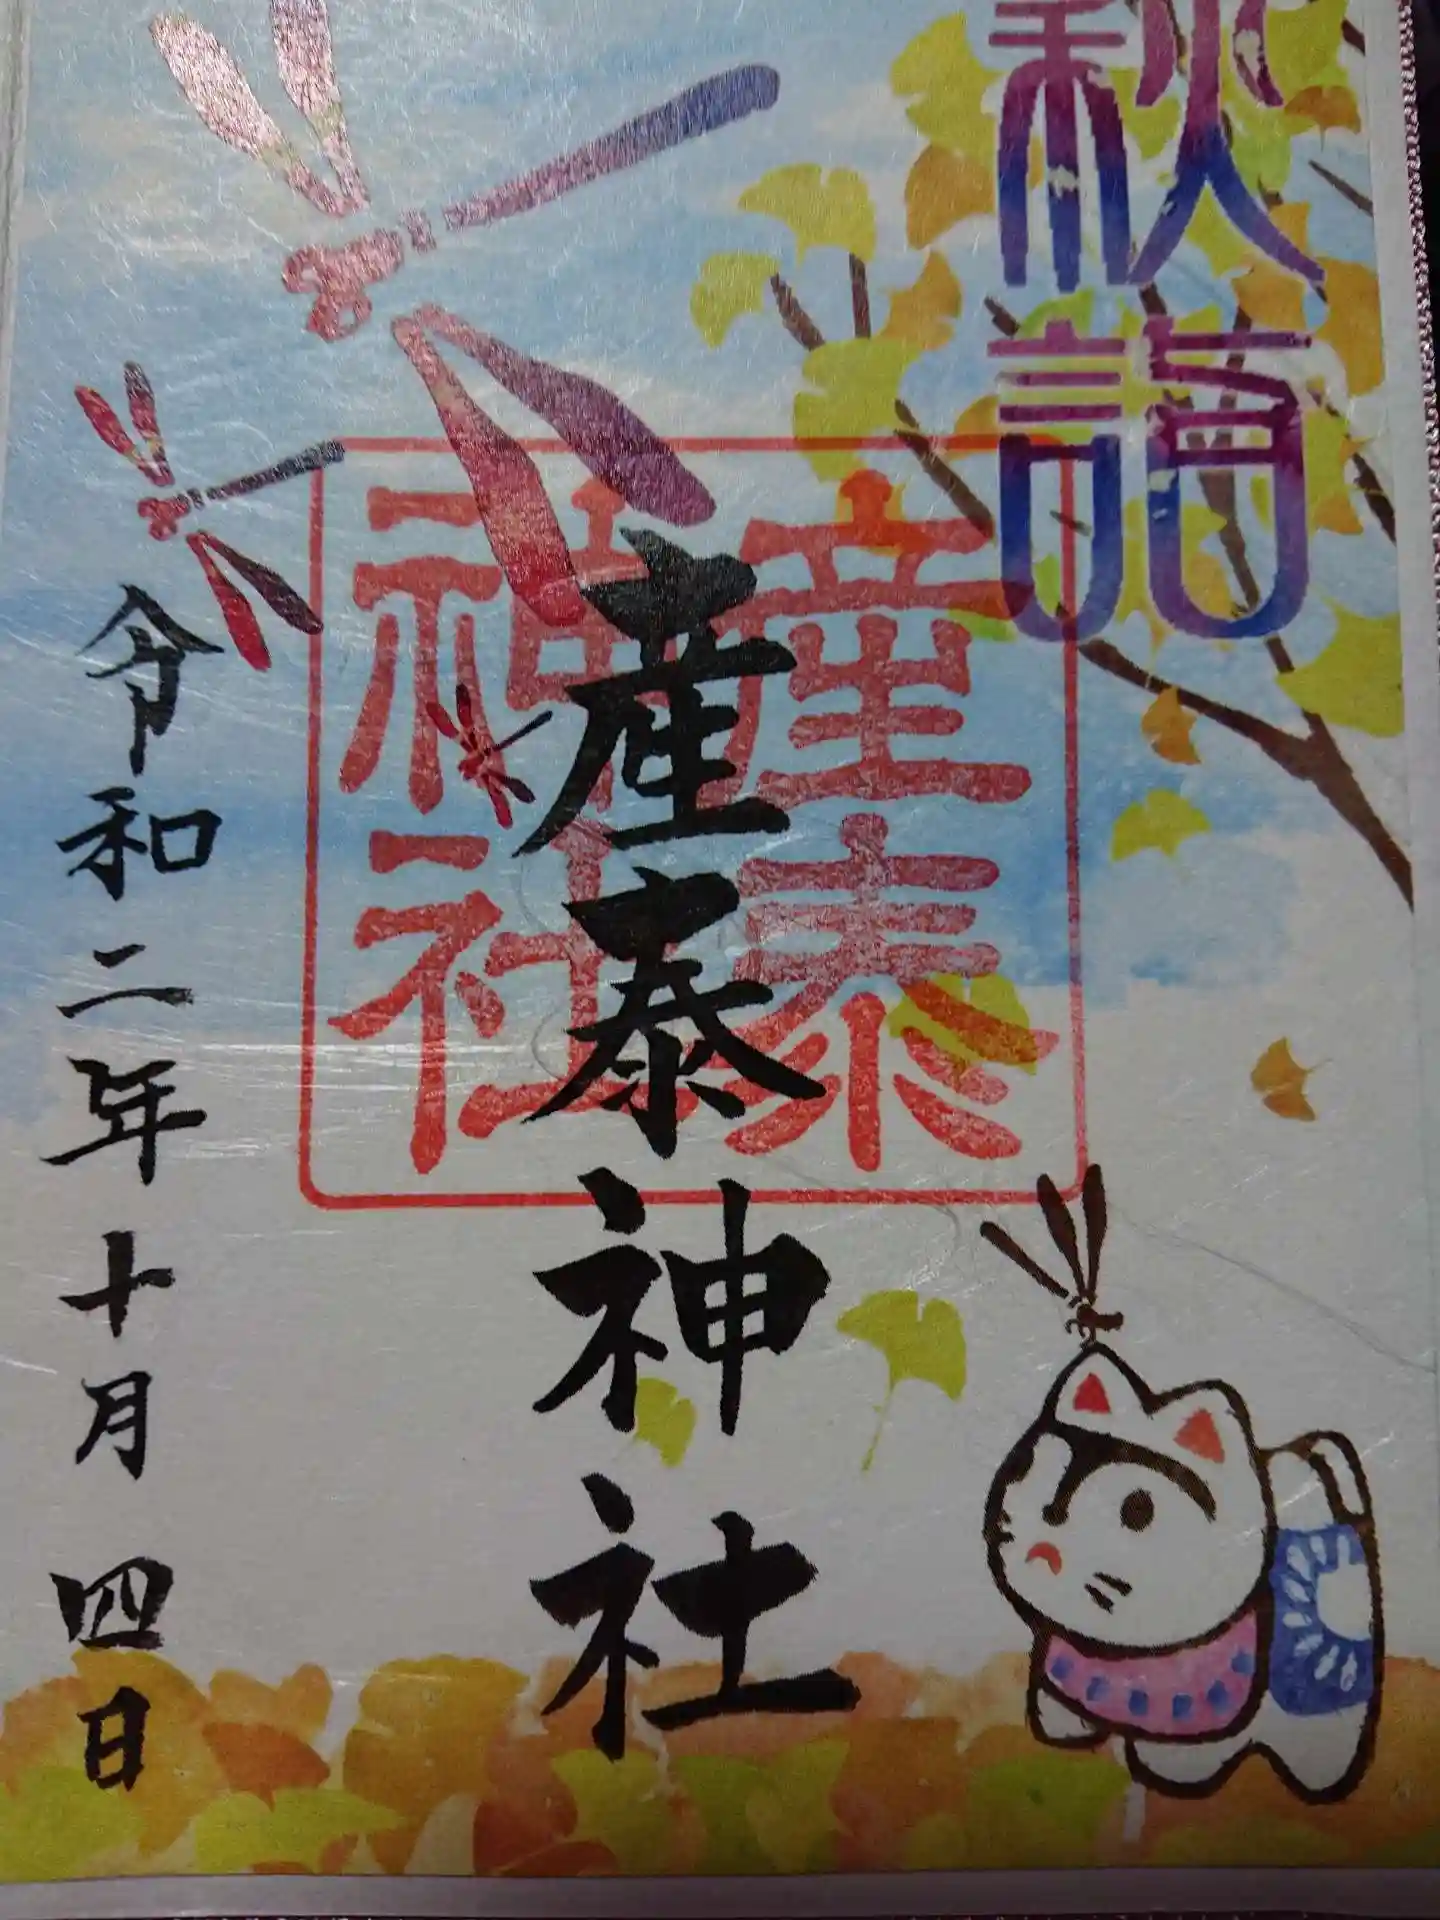 秋詣
産泰
神社
産泰神社
令和二年十月四日